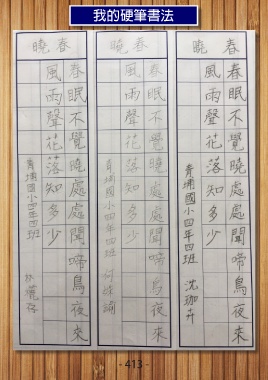 我的硬筆書法
春曉
春眠不覺曉處處聞啼鳥夜來
風雨聲花落知多少
青埔國小四年四班 沈珈卉
春曉
春眠不覺曉處處聞啼鳥夜來
風雨聲花落知多少
青埔國小四年四班
春曉
春眠不覺曉處處聞啼鳥夜來
風雨聲花落知多少
青埔國小四年四班
- 413 -